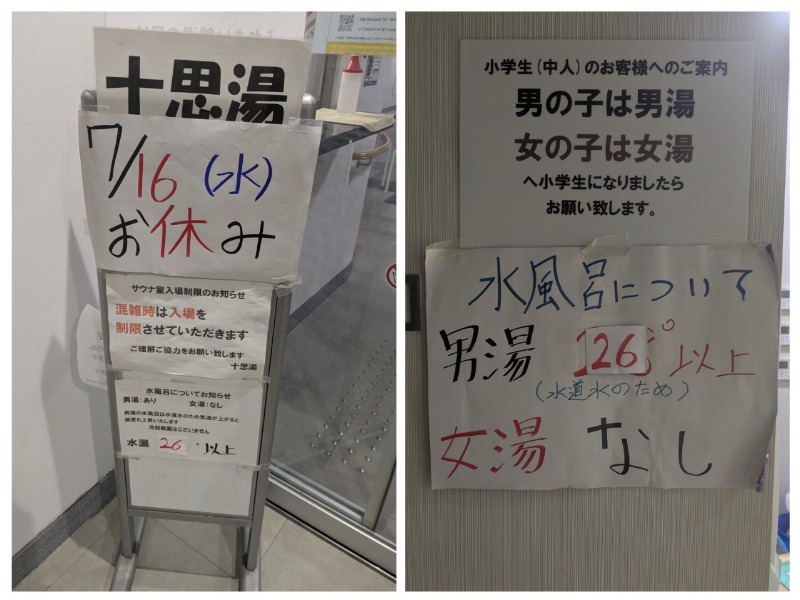 十思湯
7/16(水)
お休み
サウナ室入場制限のお知らせ
混雑時は入場を
制限させていただきます
ご理解ご協力をお願い致します
十思湯
水風呂についてお知らせ
男湯:あり 女湯:なし
男湯の水風呂は水道水のため気温が上がると
温度も上昇いたします
冷却装置はございません
水温 26°以上
小学生(中人)のお客様へのご案内
男の子は男湯
女の子は女湯
へ小学生になりましたら
お願い致します。
水風呂について
男湯 26°以上
(水道水のため)
女湯 なし